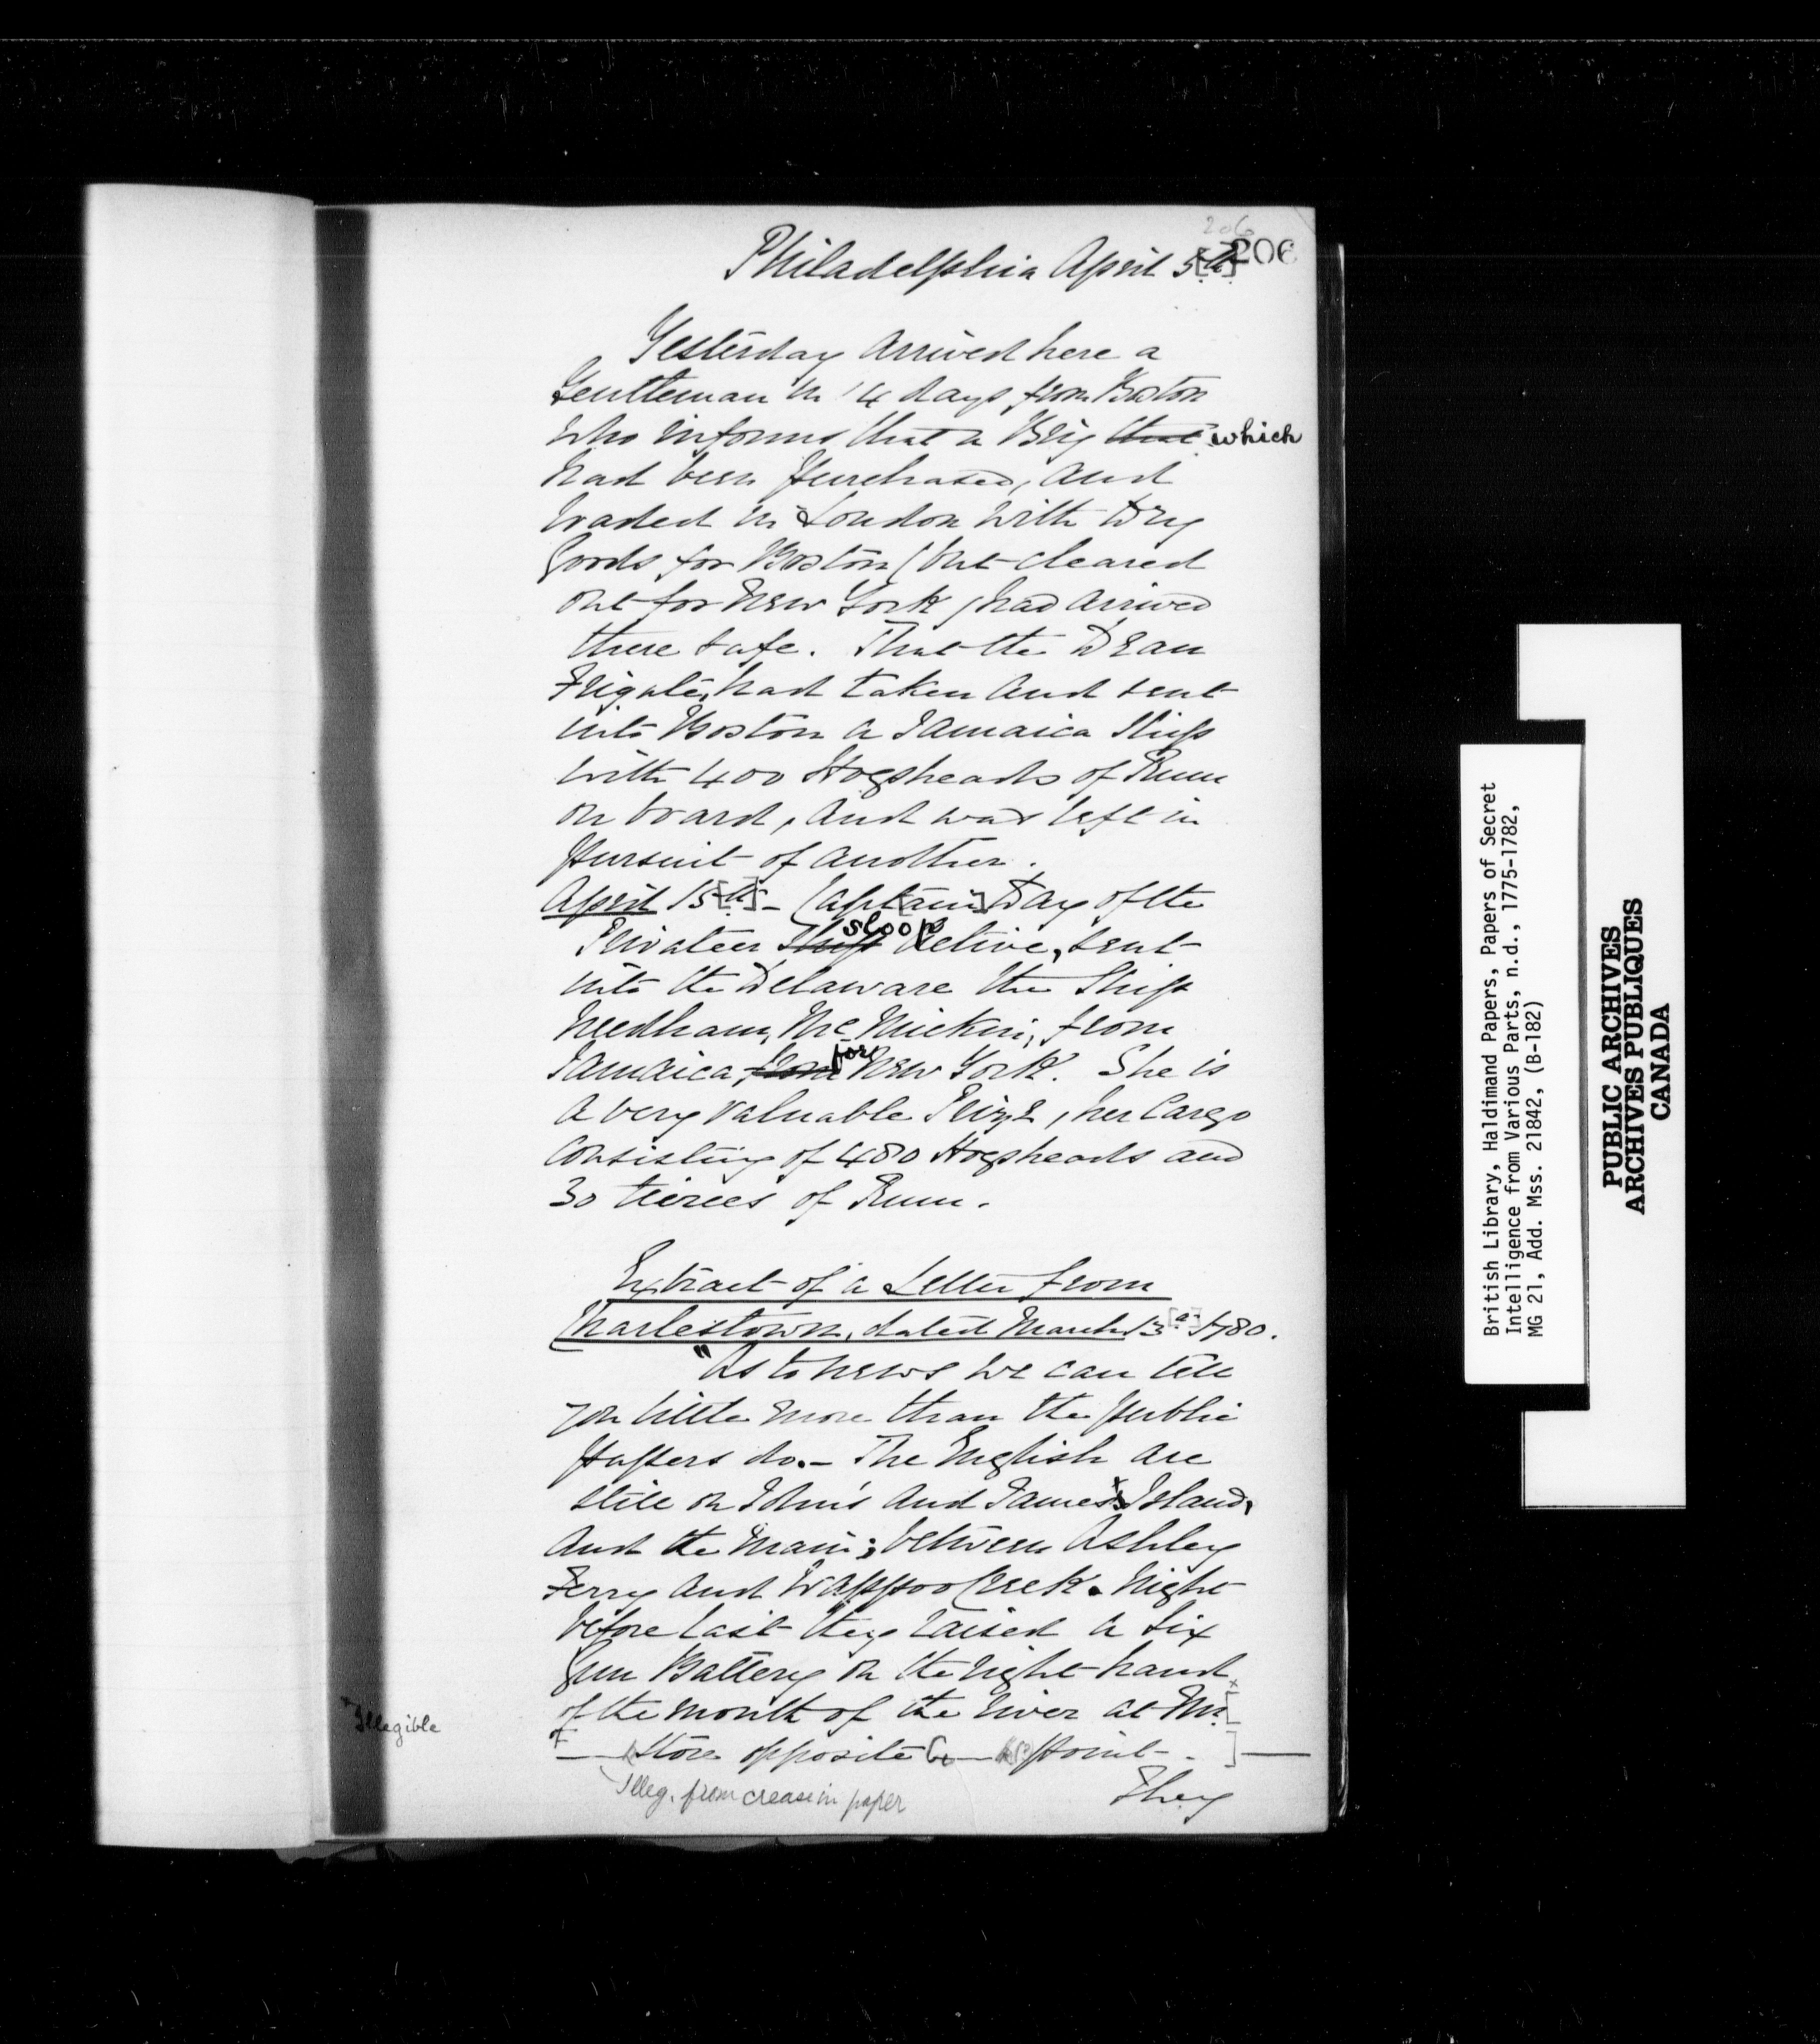 206
206
Philadelphia April 5[th]
Yesterday arrived here a
Gentleman in 14 days from Boston
who informs that a Brig that which
had been purchased, and
loaded in London with Dry
Goods for Boston (but cleared
out for New York) had arrived
there safe. That the Dean
Frigate, had taken and sent
into Boston a Jamaica Ship
with 400 Hogsheads of Rum
on board, and was left in
pursuit of another.
April 15[th] - Capt[ain] Day of the
Privateer Ship sloop Active, sent
into the Delaware the Ship
Needham, McNickin, from
Jamaica, from for New York. She is
a very valuable Prize, her Cargo
consisting of 480 Hogsheads and
30 tierces of Rum.
Extract of a Letter from
Charlestown, dated March 13[th] 1780.
"As to news we can tell
you little more than the public
papers do. - The English are
still on John's and James's Island,
and the main; between Ashley
Ferry and Wappoo Creek. Night
before last they raised a six
Gun Battery on the right hand
of the mouth of the river at
store opposite point
They
x Illegible
Illeg. from crease in paper
British Library, Haldimand Papers, Papers of Secret
Intelligence from Various Parts, n.d., 1775-1782,
MG 21, Add. Mss. 21842, (B-182)
PUBLIC ARCHIVES
ARCHIVES PUBLIQUES
CANADA